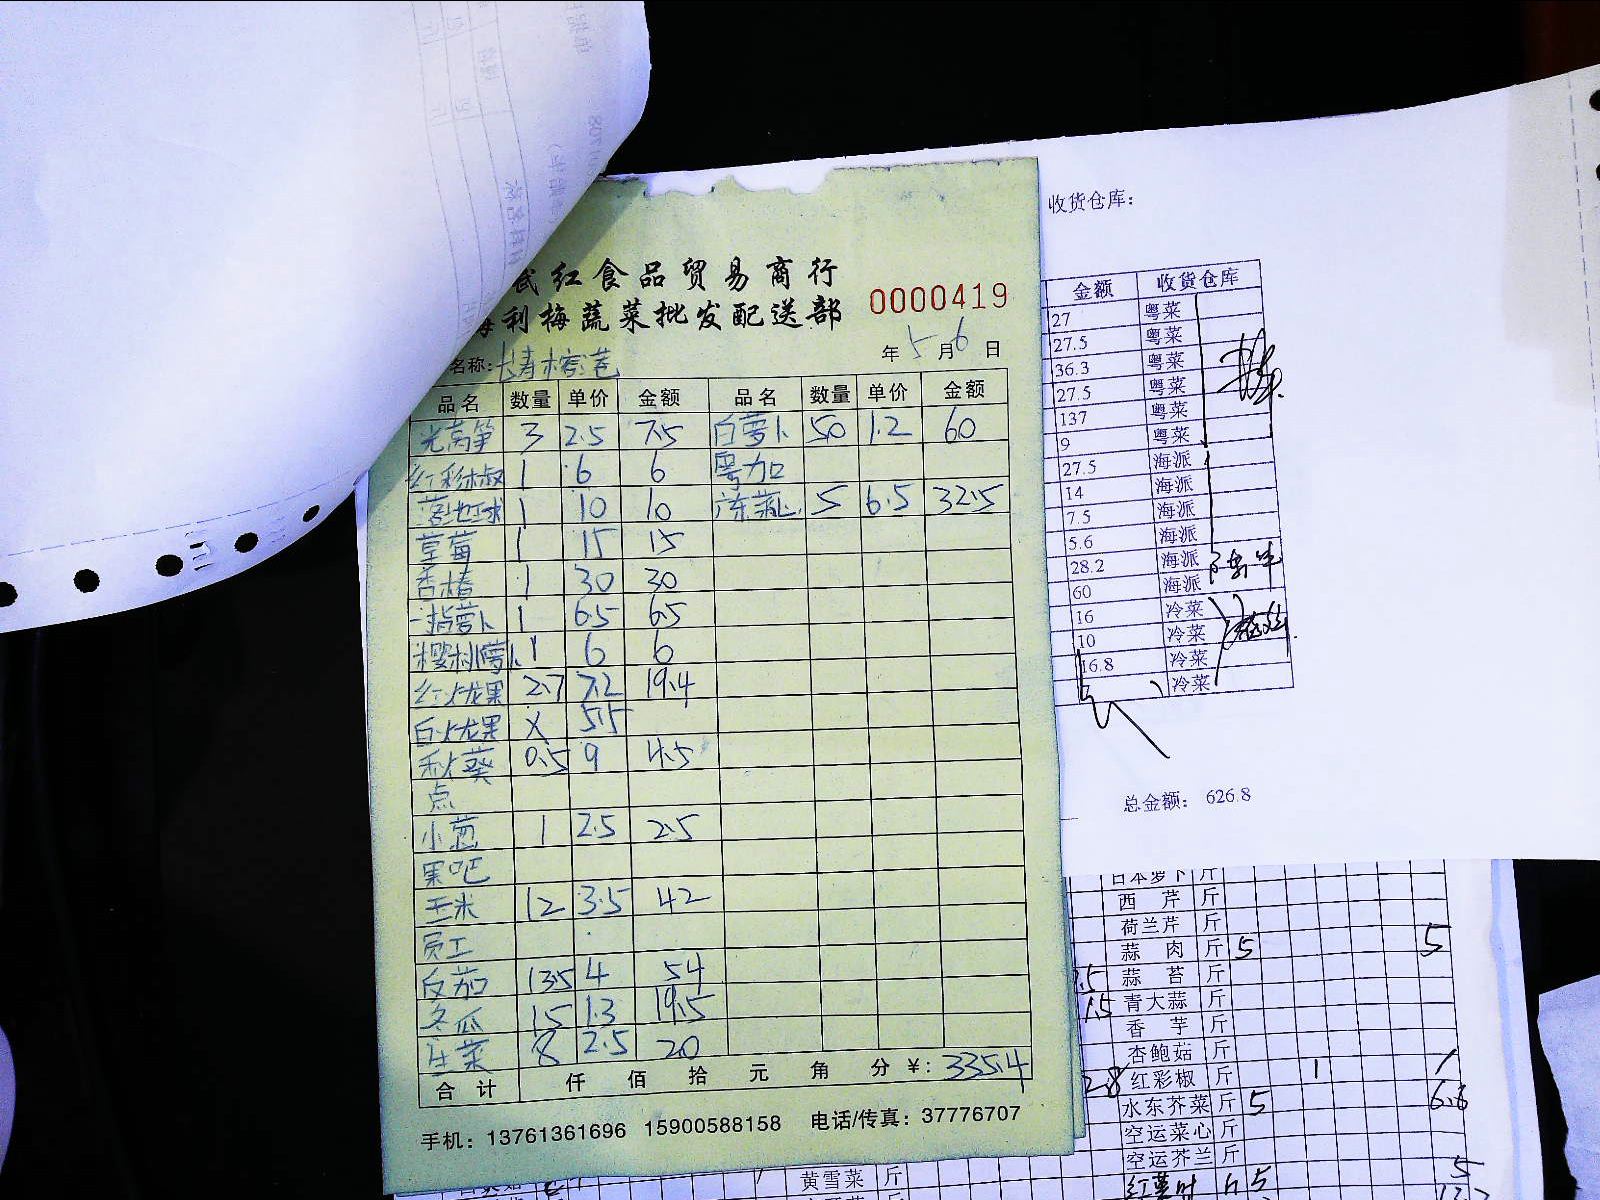 武红食品贸易商行
利梅蔬菜批发配送部
0000419
名称:
年 5 月 6 日
品名 数量 单价 金额 品名 数量 单价 金额
光莴笋 3 2.5 7.5 白萝卜 50 1.2 60
红彩椒 1 6 6 粤加
1 10 10 5 6.5 32.5
草莓 1 15 15
香椿 1 30 30
一指萝卜 1 6.5 6.5
樱桃萝卜 1 6 6
红火龙果 2.7 7.2 19.4
白火龙果 X 5.5
秋葵 0.5 9 4.5
点
小葱 1 2.5 2.5
果吧
玉米 12 3.5 42
员工
13.5 4 54
冬瓜 15 1.3 19.5
生菜 8 2.5 20
合计 仟 佰 拾 元 角 分 ¥: 335.4
手机: 13761361696 15900588158 电话/传真: 37776707
收货仓库:
金额 收货仓库
27 粤菜
27.5 粤菜
36.3 粤菜
27.5 粤菜
137 粤菜
9 粤菜
27.5 海派
14 海派
7.5 海派
5.6 海派
28.2 海派
60 海派
16 冷菜
10 冷菜
16.8 冷菜
冷菜
总金额: 626.8
日本萝卜 斤
西芹 斤
荷兰芹 斤
蒜肉 斤 5 5
蒜苔 斤
青大蒜 斤
香芋 斤
杏鲍菇 斤
红彩椒 斤 1 1
水东芥菜 斤 5 6.6
空运菜心 斤
空运芥兰 斤
红薯叶 斤 5 5
黄雪菜 斤